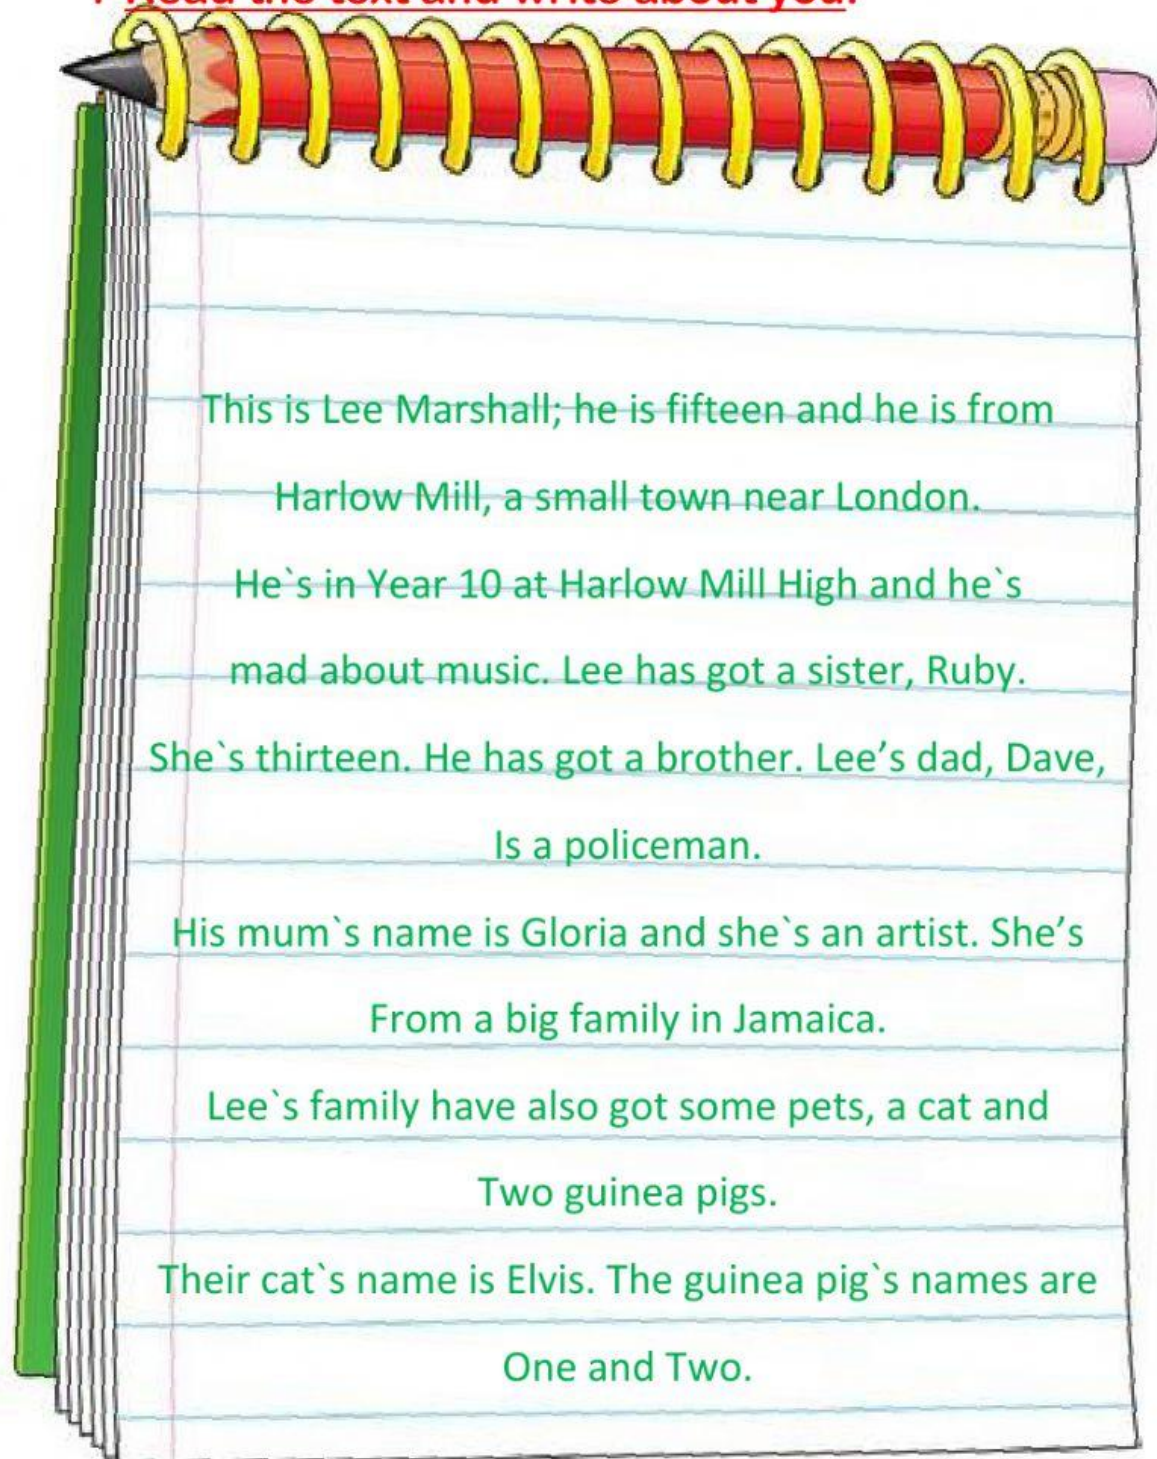 Read the text and write about you.
This is Lee Marshall; he is fifteen and he is from
Harlow Mill, a small town near London.
He`s in Year 10 at Harlow Mill High and he`s
mad about music. Lee has got a sister, Ruby.
She`s thirteen. He has got a brother. Lee’s dad, Dave,
Is a policeman.
His mum`s name is Gloria and she`s an artist. She’s
From a big family in Jamaica.
Lee`s family have also got some pets, a cat and
Two guinea pigs.
Their cat`s name is Elvis. The guinea pig`s names are
One and Two.